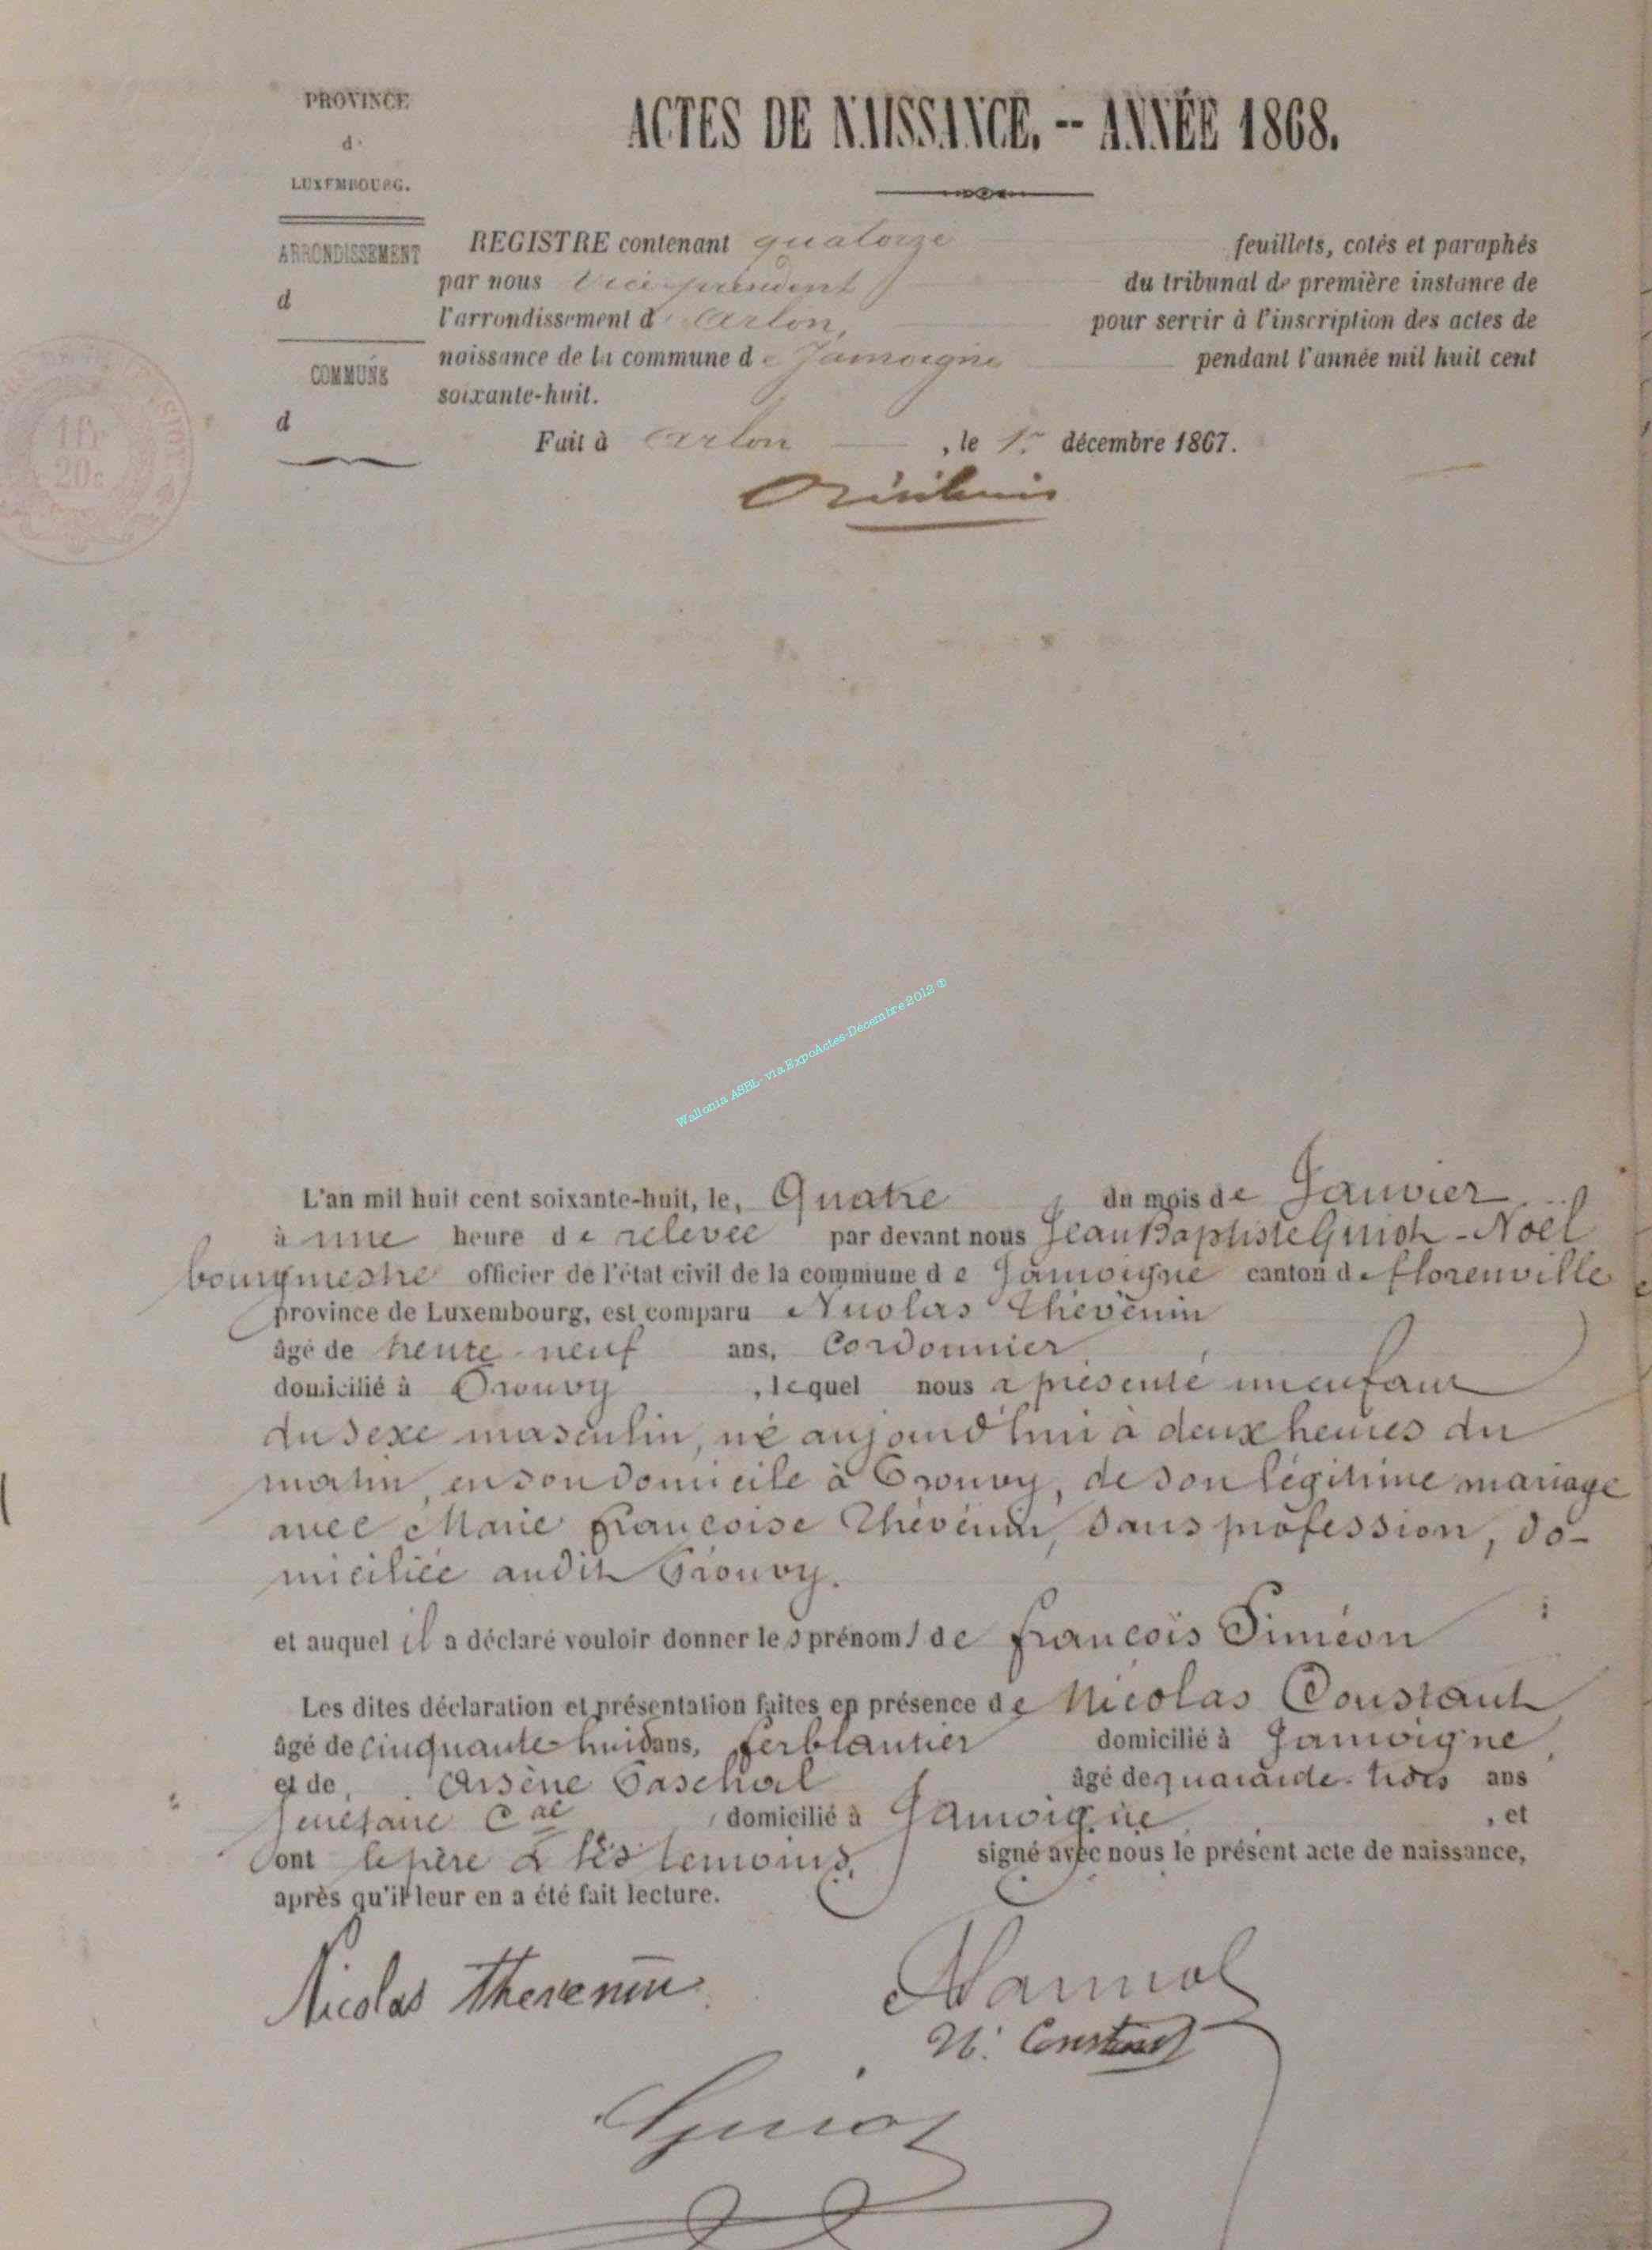 PROVINCE
d
LUXEMBOURG.
ARRONDISSEMENT
d
COMMUNE
d
1fr
20c
ACTES DE NAISSANCE. -- ANNÉE 1868.
REGISTRE contenant quatorze feuillets, cotés et paraphés
par nous Vice-président du tribunal de première instance de
l'arrondissement d'Arlon, pour servir à l'inscription des actes de
naissance de la commune de Jamoigne pendant l'année mil huit cent
soixante-huit.
Fait à Arlon, le 1er décembre 1867.
Wallonia ASBL- via ExpoActes-Décembre 2012 ®
L'an mil huit cent soixante-huit, le, Quatre du mois de Janvier
à une heure de relevée par devant nous Jean Baptiste Guiot-Noël
bourgmestre officier de l'état civil de la commune de Jamoigne canton de florenville
province de Luxembourg, est comparu Nicolas Thévenin
âgé de trente-neuf ans, Cordonnier
domicilié à Prouvy, lequel nous a présenté un enfant
du sexe masculin, né aujourd'hui à deux heures du
matin, en son domicile à Prouvy, de son légitime mariage
avec Marie françoise Thévenin, sans profession, do-
miciliée audit Prouvy.
et auquel il a déclaré vouloir donner les prénoms de françois Siméon
Les dites déclaration et présentation faites en présence de Nicolas Constant
âgé de cinquante-huit ans, ferblantier domicilié à Jamoigne,
et de Arsène Paschal âgé de quarante-trois ans
Secrétaire Cal domicilié à Jamoigne, et
ont le père & les témoins, signé avec nous le présent acte de naissance,
après qu'il leur en a été fait lecture.
Nicolas Thevenin
N. Constant
Guiot